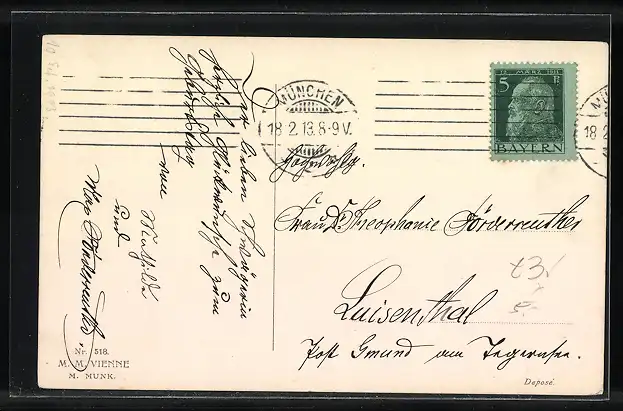 Der lieben Schwägerin
herzl. Glückwünsche zum
Geburtstag
von
Mathilde
und
Max Förderreuther.
MÜNCHEN
18 2. 13. 8-9 V.
12. MÄRZ 1911
5 Pf
BAYERN
18 2
Frau Theophanie Förderreuther
Luisenthal
Post Gmund am Tegernsee.
Nr. 518.
M. M. VIENNE
M. MUNK.
Deposé.